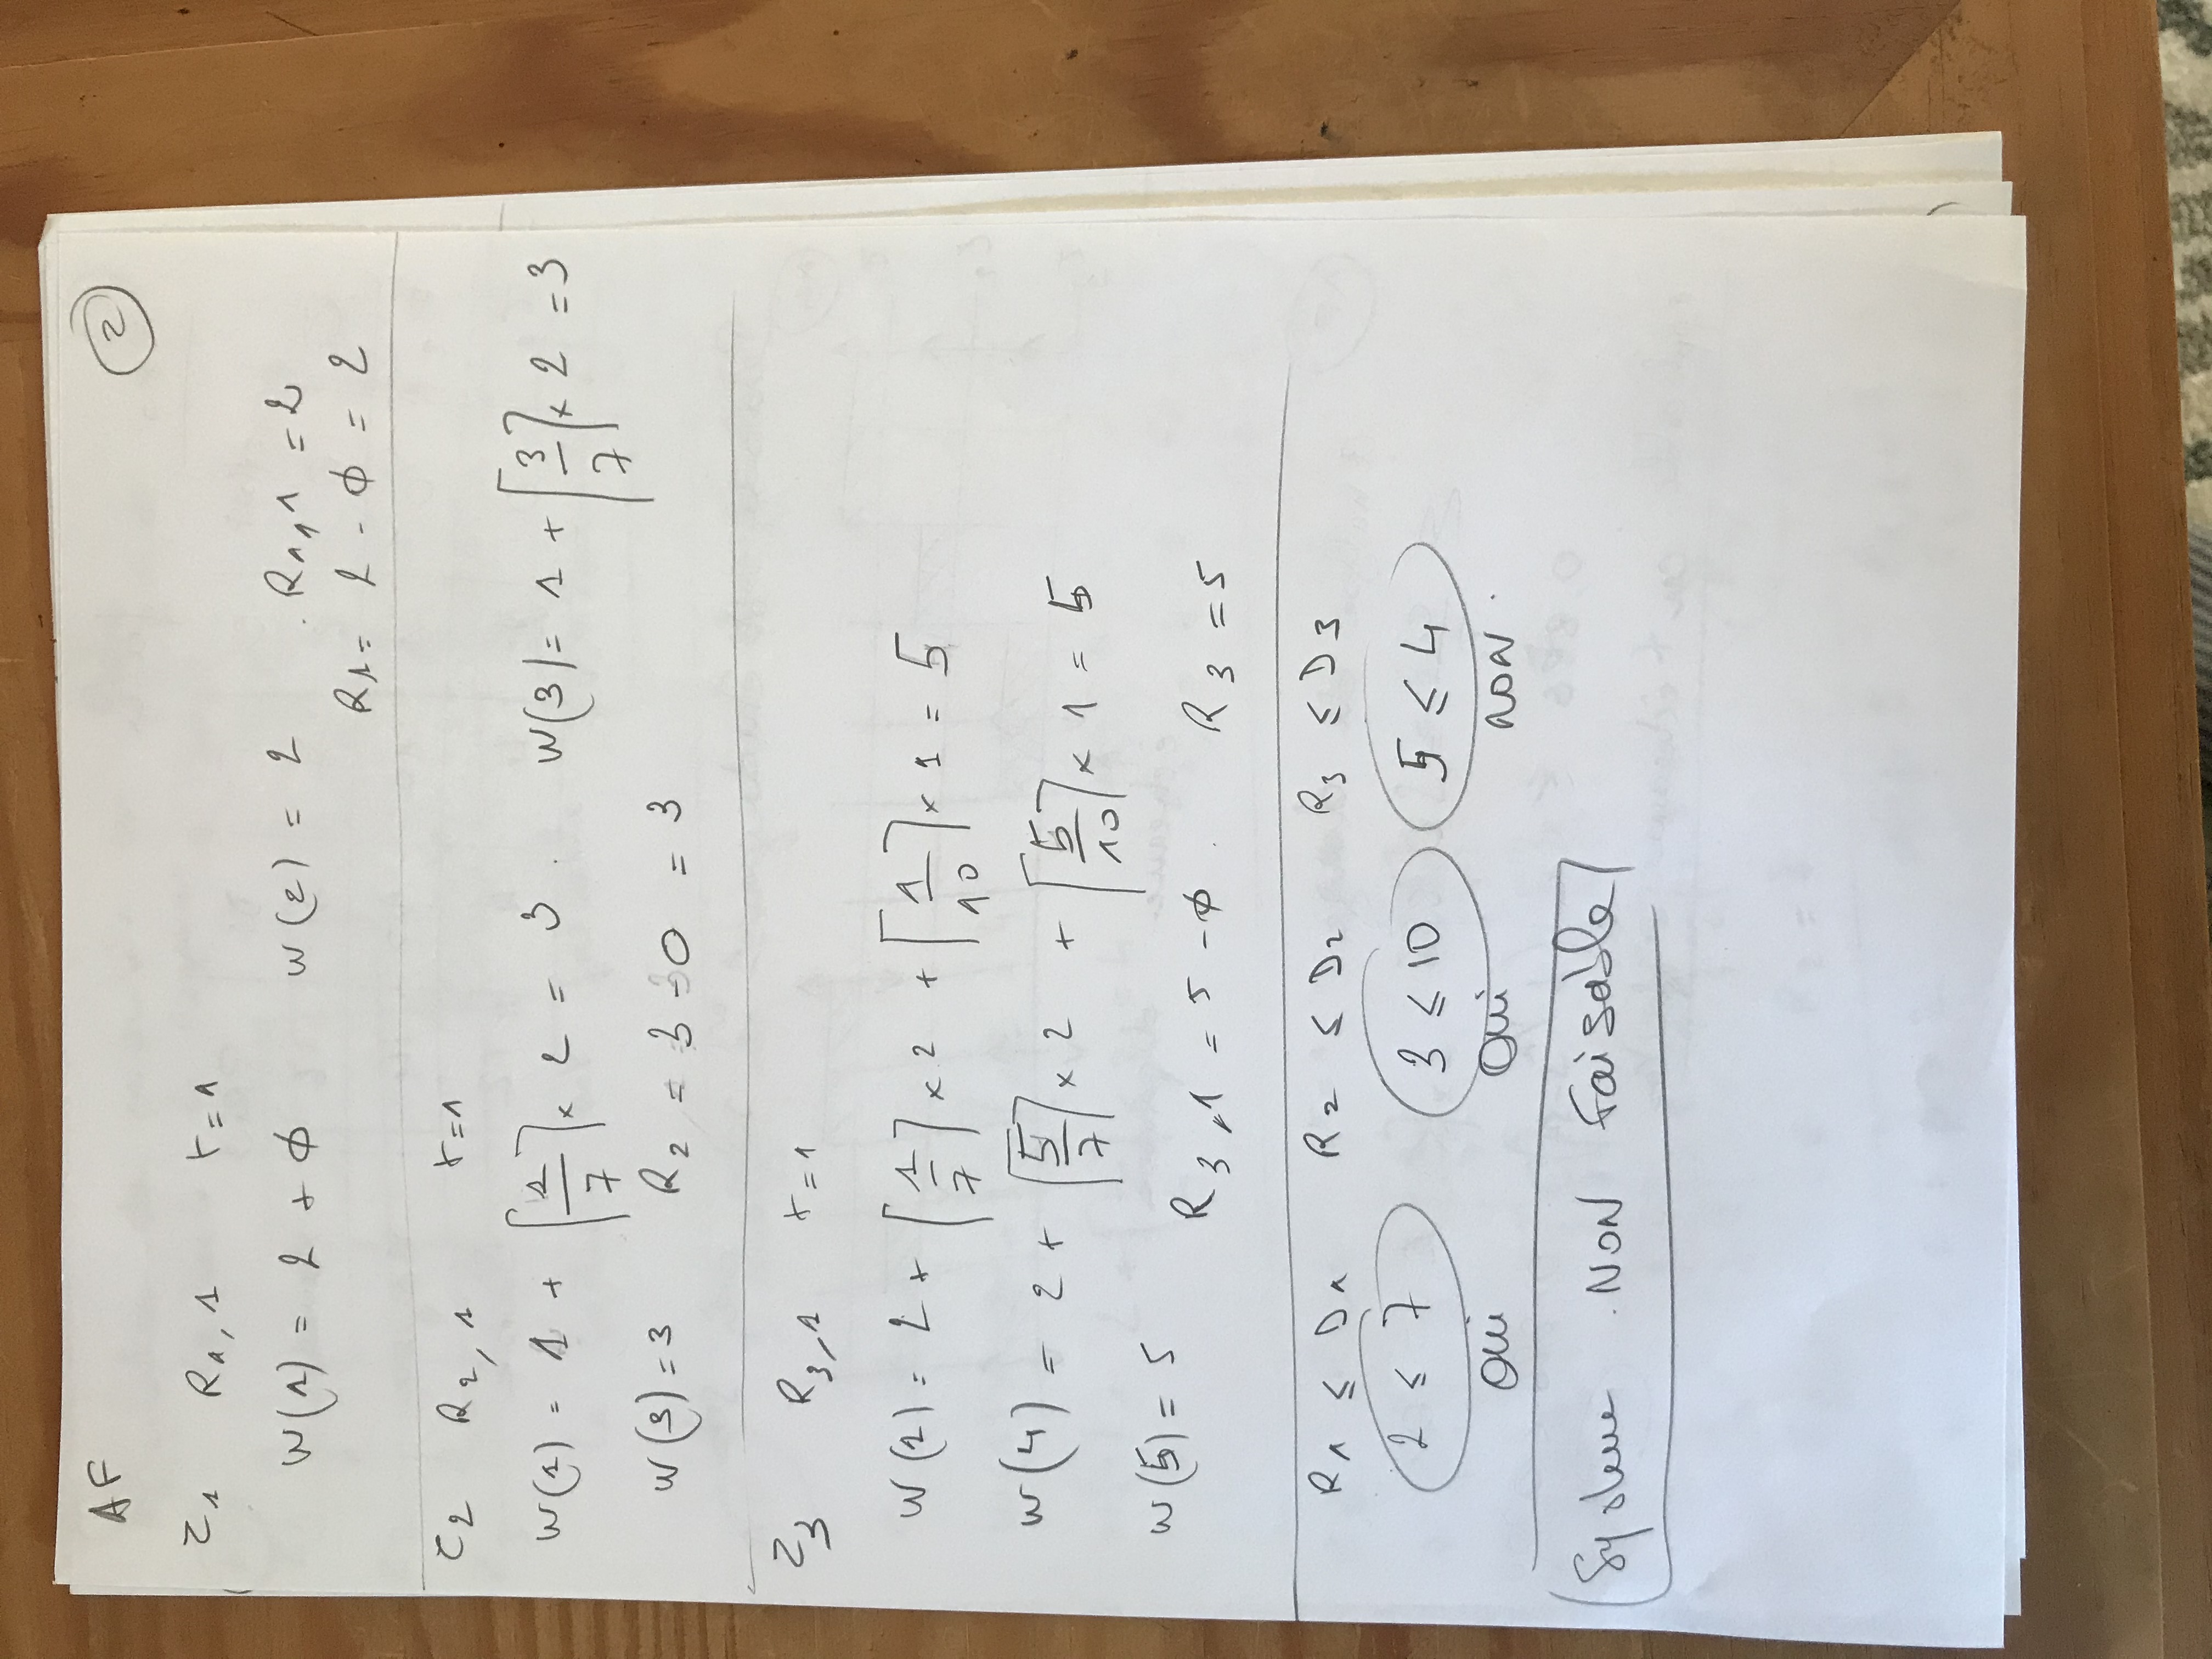 AF ②
τ1 R1,1 t=1
w(1) = 2 + φ w(2) = 2 . R1,1 = 2
R1 = 2 - φ = 2
τ2 R2,1 t=1
w(1) = 1 + ⌈1/7⌉ x 2 = 3 . w(3) = 1 + ⌈3/7⌉ x 2 = 3
w(3) = 3 R2 = 3 - 0 = 3
τ3 R3,1 t=1
w(1) = 2 + ⌈1/7⌉ x 2 + ⌈1/10⌉ x 1 = 5
w(4) = 2 + ⌈5/7⌉ x 2 + ⌈5/10⌉ x 1 = 5
w(5) = 5 R3,1 = 5 - φ . R3 = 5
R1 ≤ D1 R2 ≤ D2 R3 ≤ D3
2 ≤ 7 3 ≤ 10 5 ≤ 4
Oui Oui NON .
Système . NON Faisable